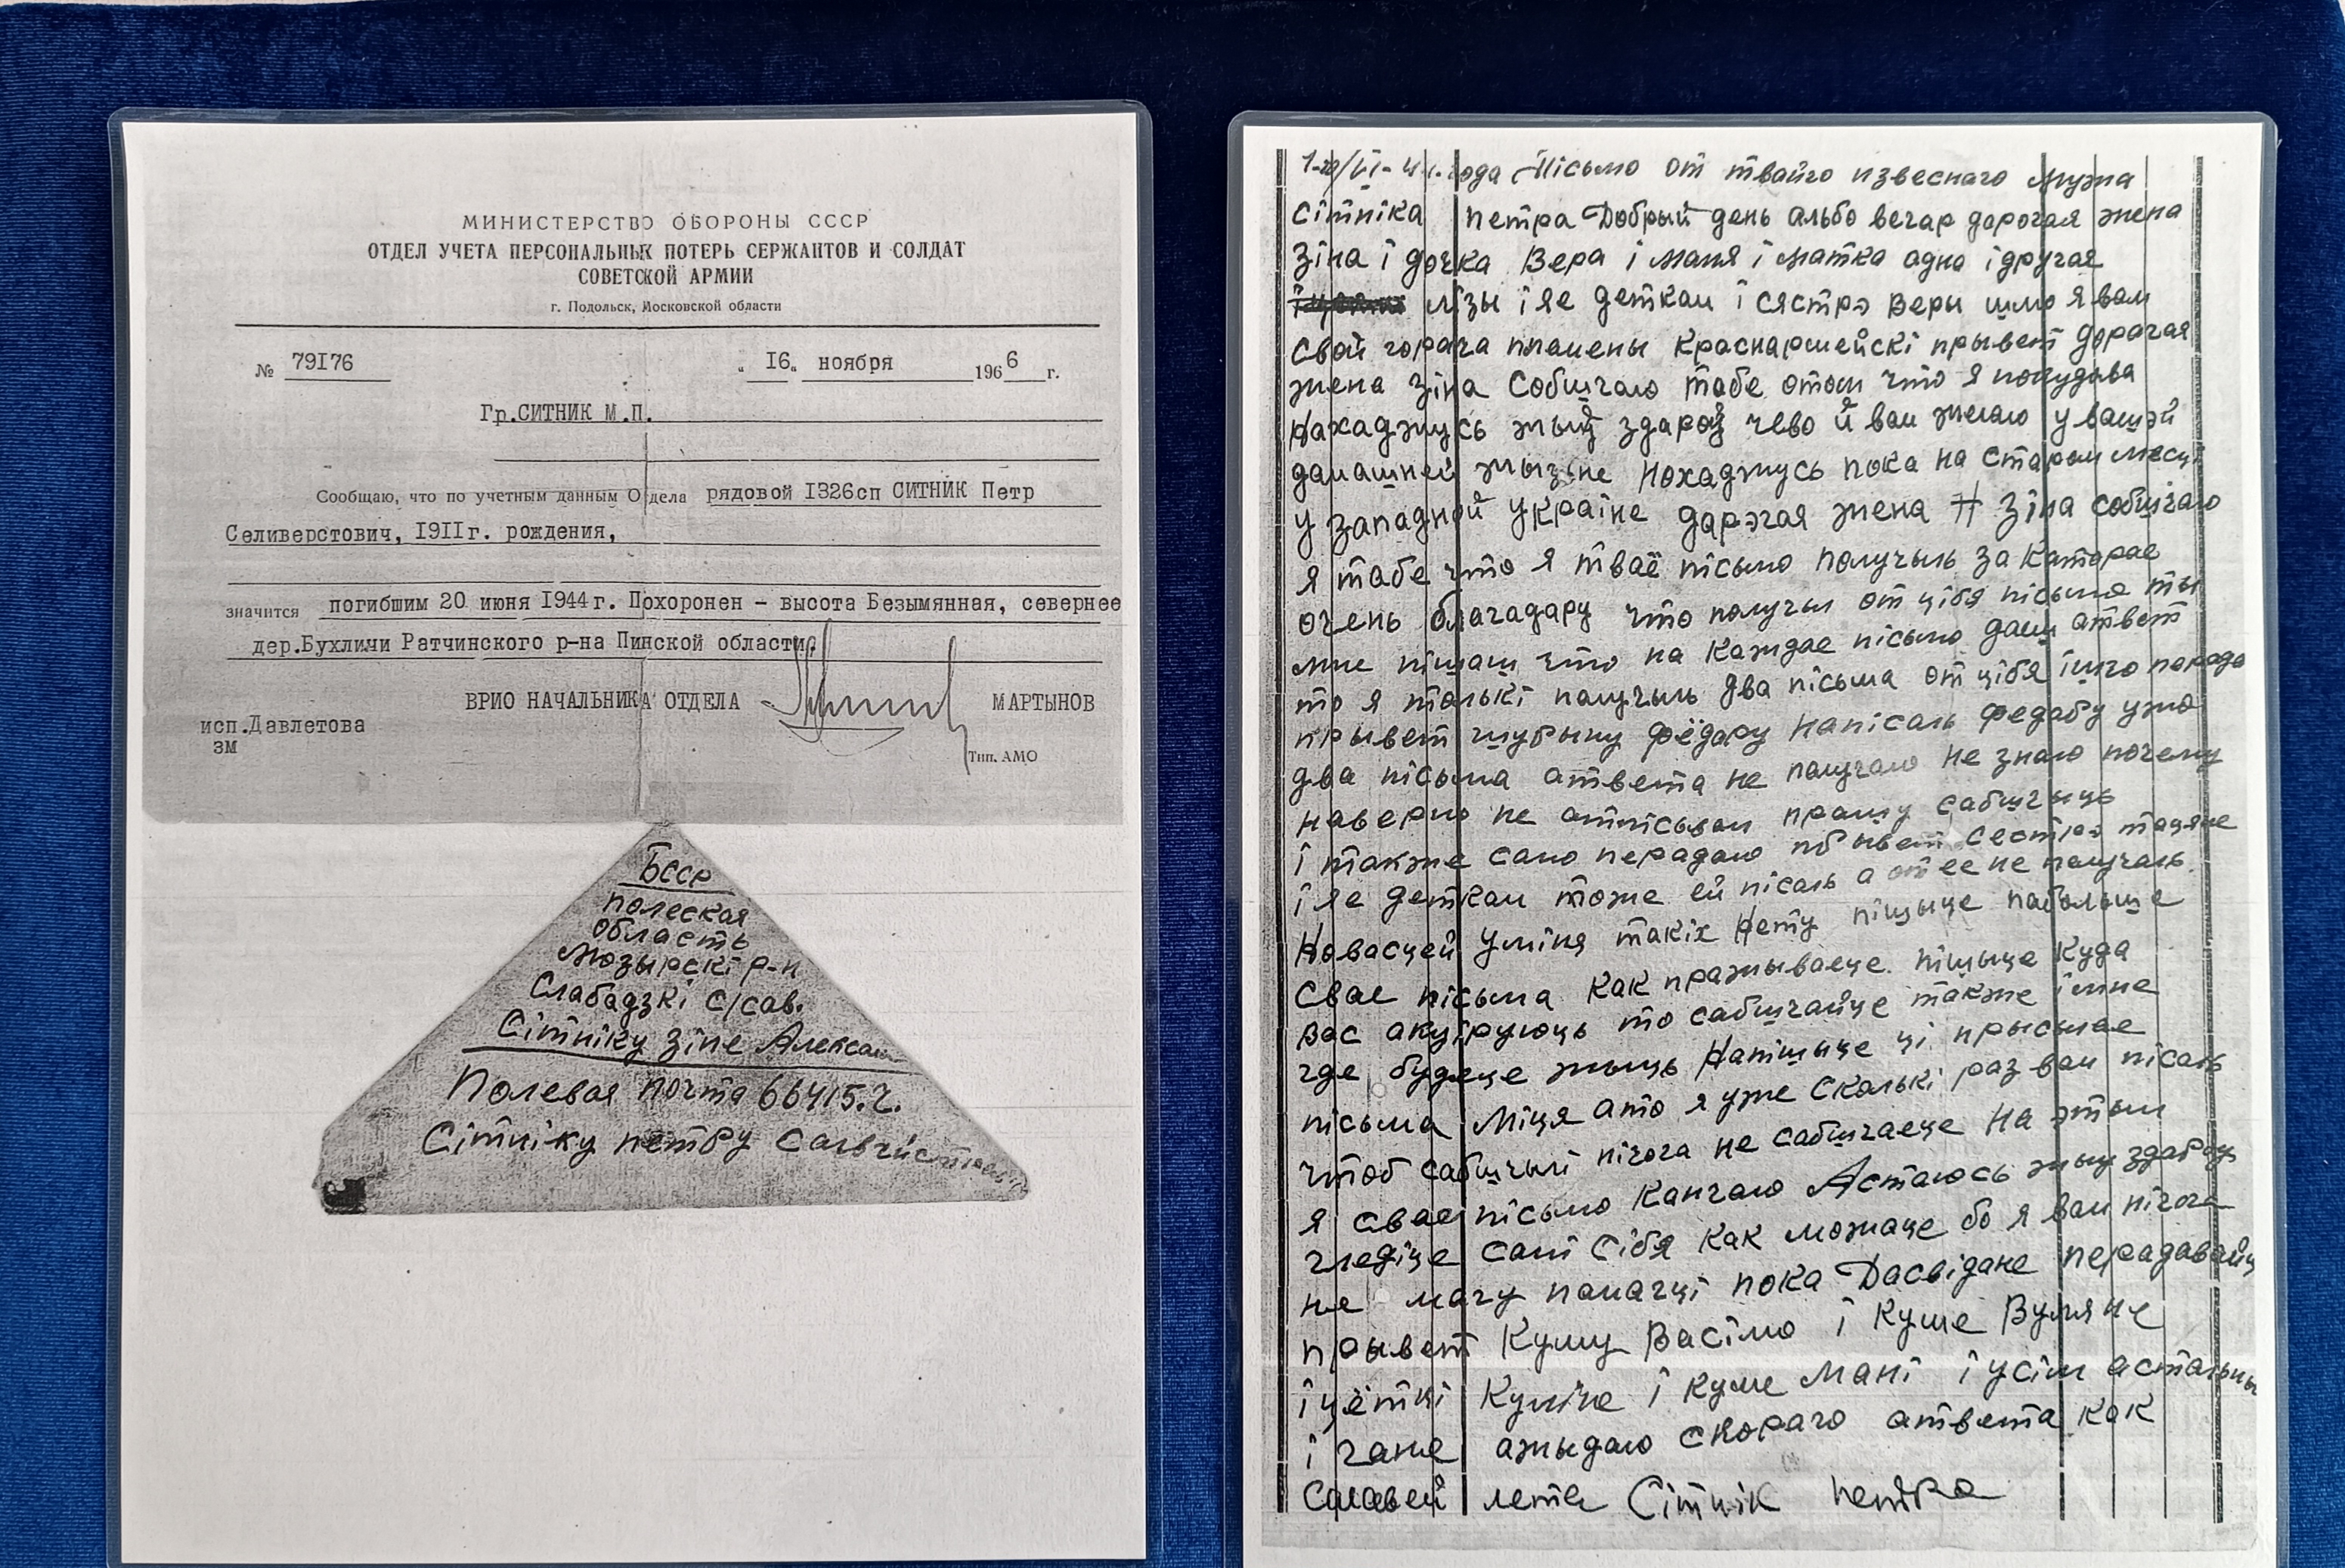 МИНИСТЕРСТВО ОБОРОНЫ СССР
ОТДЕЛ УЧЕТА ПЕРСОНАЛЬНЫХ ПОТЕРЬ СЕРЖАНТОВ И СОЛДАТ
СОВЕТСКОЙ АРМИИ
г. Подольск, Московской области
№ 79176 „16„ ноября 1966 г.
Гр.СИТНИК М.П.
Сообщаю, что по учетным данным Отдела рядовой 1326сп СИТНИК Петр
Селиверстович, 1911г. рождения,
значится погибшим 20 июня 1944г. Похоронен - высота Безымянная, севернее
дер.Бухличи Ратчинского р-на Пинской области.
ВРИО НАЧАЛЬНИКА ОТДЕЛА МАРТЫНОВ
исп.Давлетова
зм
Тип. АМО
БССР
Полеская
Область
Мозырскі р-н
Слабадзкі с/сав.
Сітніку Зіне Алексан
Полевая почта 66415.ч.
Сітніку петру
года Пісьмо от твайго извеснаго мужа
Сітніка петра Добрый день альбо вечар дарогая жена
Зіна і дочка Вера і Маня і Матка адна і другая
лізы і яе деткам і сястрэ Веры шлю я вам
свой горача пламены краснармейскі прывет дорагая
жена Зіна Собшчаю табе отом что я покудова
нахаджусь жыў здароў чево й вам жалаю у вашэй
дамашней жызьне Нохаджусь пока на старом месцы
у западной Украіне дарэгая жена Зіна собшчаю
я табе что я тваё пісьмо получыль за каторае
очень благадару что получыл от цібя пісьмо ты
мне пішаш что на каждае пісьмо даш атвет
то я толькі получыль два пісьма от цібя
прывет шубыну фёдару Напісаль Федару ужо
два пісьма атвета не получаю не знаю почему
наверно не атпісывал прашу сабшчыць
і также само перадаю прывет сестрэ тацяне
і яе деткам тоже ей пісаль а от ее не получаль.
Новасцей уміня такіх Нету пішыце пабольше
свае пісьма как пражываеце. пішыце куда
вас акуіруюць то сабшчайце также імне
где будеце жыць Напішыце ці прысылае
пісьма Міця ато я уже сколькі раз вам пісаль
чтоб сабшчылі нічога не сабшчаеце На этым
я свае пісьмо канчаю Астаюсь жыў здароў
гледіце самі сібя как можаце бо я вам нічога
не магу памагчі пока Дасвідане перадавайце
прывет Куму Васілю і Куме Вуляне
і цёткі Куліне і куме Мані і усім астальным
і гане ажыдаю скораго атвета как
Салавей лета Сітнік петра